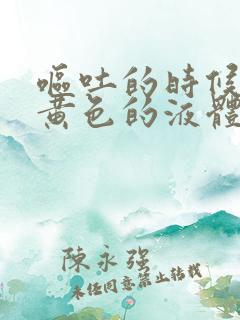 嘔吐的時候
黃色的液體
陳永強
未任同意禁止转载